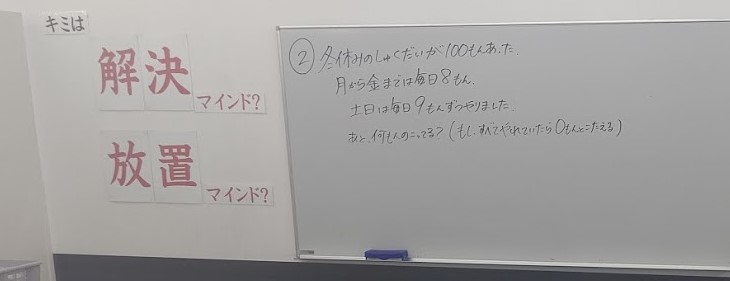 キミは
解決
マインド?
放置
マインド?
② 冬休みのしゅくだいが100もんあった.
月から金までは毎日8もん.
土日は毎日9もんずつやりました.
あと、何もんのこってる?(もし、すべてやれていたら0もんとこたえる)